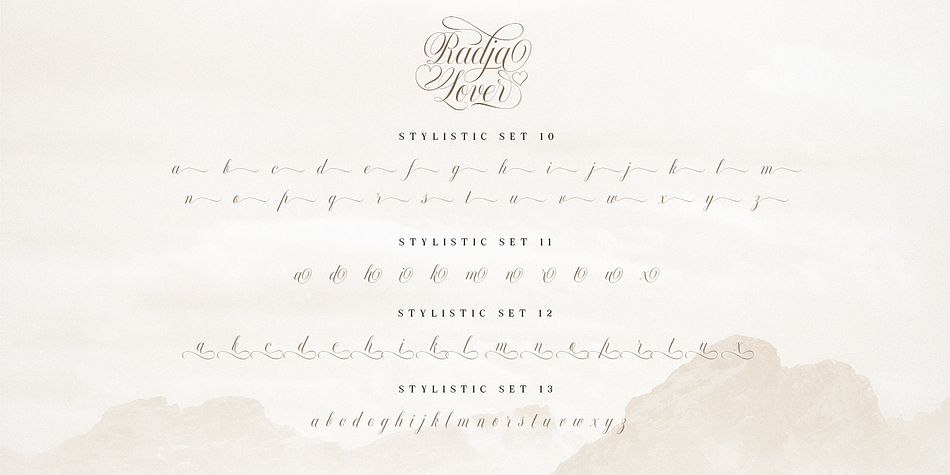 Radja
Lover
STYLISTIC SET 10
a b c d e f g h i j j k l m
n o p q r s t u v w x y z
STYLISTIC SET 11
a d h i k m n r t u x
STYLISTIC SET 12
a k c d e h i k l m n o p r t u x
STYLISTIC SET 13
a b c d e g h i j k l m n o r s t u v w x y z